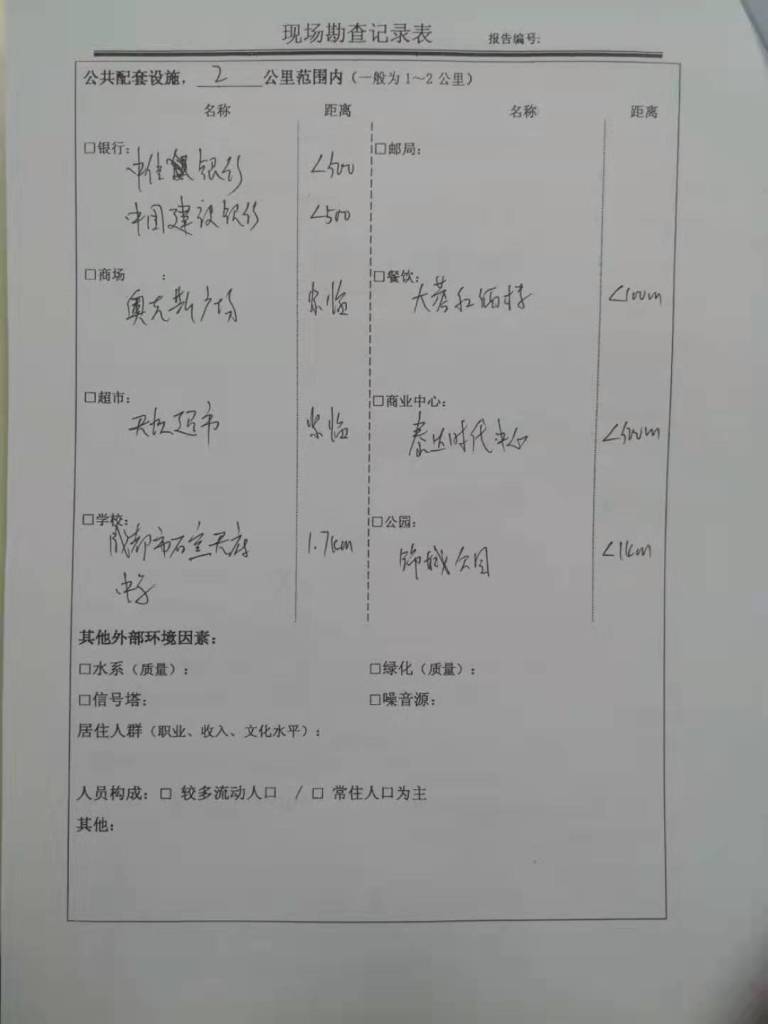 现场勘查记录表 报告编号:
公共配套设施，2公里范围内（一般为1～2公里）
名称 距离 名称 距离
□银行: □邮局:
中信银行 <500
中国建设银行 <500
□商场 : □餐饮:
奥克斯广场 紧临 大蓉和 <100m
□超市: □商业中心:
天虹超市 紧临 泰达时代中心 <500m
□学校: □公园:
成都市石室天府 1.7km 锦城公园 <1km
中学
其他外部环境因素：
□水系（质量）： □绿化（质量）：
□信号塔： □噪音源：
居住人群（职业、收入、文化水平）：
人员构成：□ 较多流动人口 / □ 常住人口为主
其他：